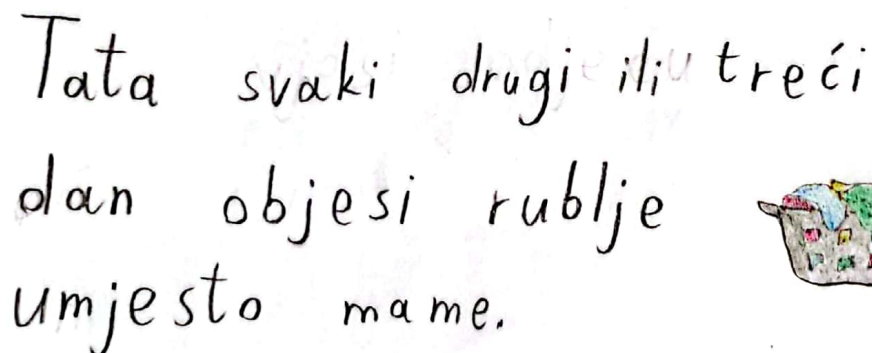 Tata svaki drugi ili treći
dan objesi rublje
umjesto mame.